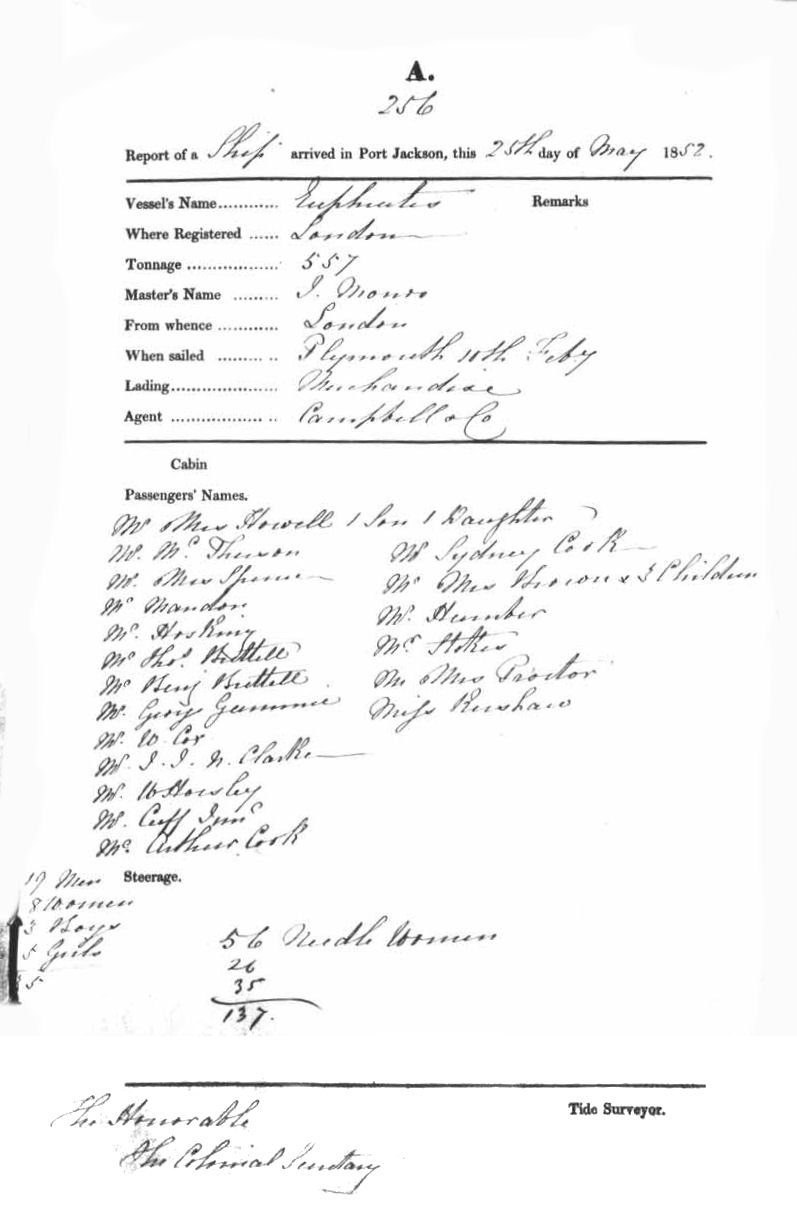 A.
256
Report of a Ship arrived in Port Jackson, this 25th day of May 1852.
Vessel's Name............ Euphrates Remarks
Where Registered ...... London
Tonnage .................. 557
Master's Name ......... J. Monro
From whence ............ London
When sailed ........... Plymouth 10th Feby
Lading..................... Merchandise
Agent ..................... Campbell & Co
Cabin
Passengers' Names.
Mr Mrs Howell 1 Son 1 Daughter
Mr. Mc.
Mr. Mrs Spence
Mr Mandon
Mr. Hosking
Mr Thos. Brettell
Mr Benj Brettell
Mr. George Gammie
Mr. W. Cox
Mr. J. J. N. Clarke
Mr. W Horsley
Mr. Cuff Junr
Mr. Arthur Cook
Mr Sydney Cook
Mr Mrs Brown & 3 Children
Mr. Humber
Mr. Stokes
Mr Mrs Proctor
Miss Renshaw
Steerage.
19 Men
8 Women
3 Boys
5 Girls
35
56 Needle Women
26
35
137.
Tide Surveyor.
The Honorable
The Colonial Secretary